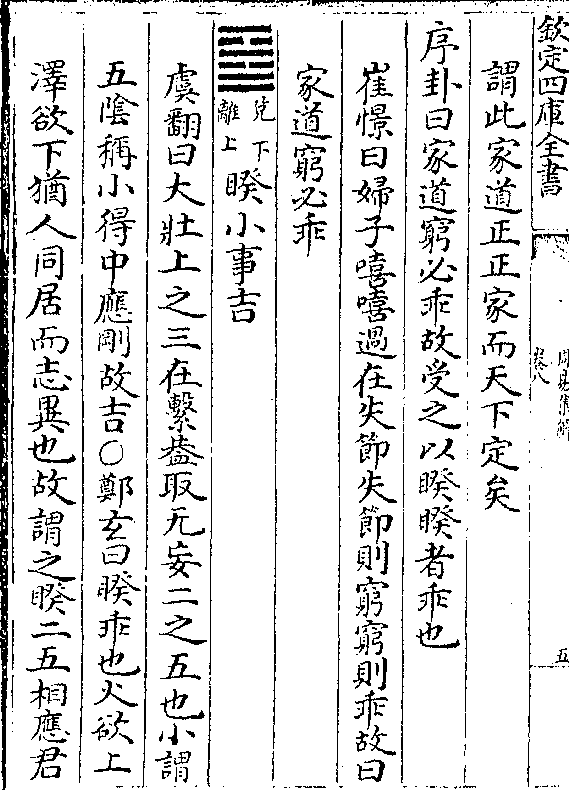 欽定四庫全書
周易集解
卷八
五
謂此家道正正家而天下定矣
序卦曰家道窮必乖故受之以睽睽者乖也
崔憬曰婦子嘻嘻過在失節失節則窮窮則乖故曰
家道窮必乖
兌下
離上
睽小事吉
虞翻曰大壯上之三在繫葢取无妄二之五也小謂
五陰稱小得中應剛故吉○鄭玄曰睽乖也火欲上
澤欲下猶人同居而志異也故謂之睽二五相應君